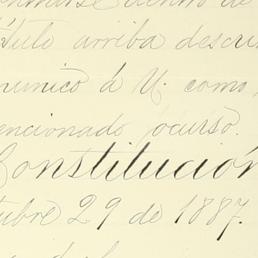 dentro de
título arriba descri
munico á U. como
encionado ocurso.
Constitución
tubre 29 de 1887.